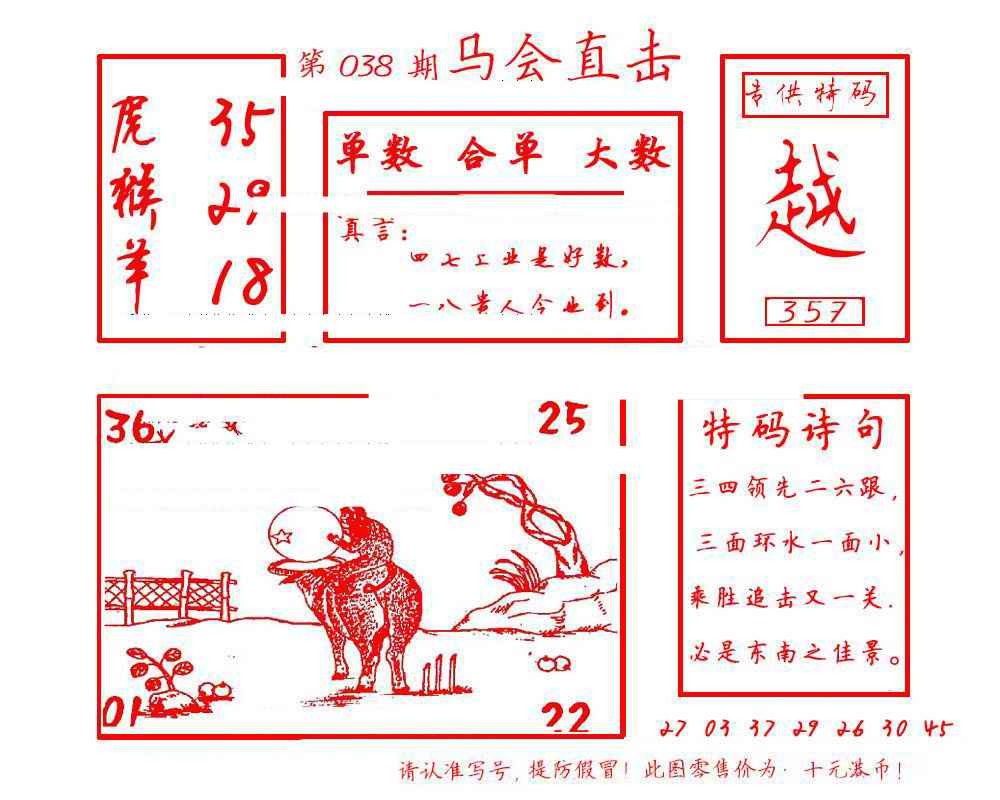 第 038 期 马会直击
虎 35
猴 29
羊 18
单数 合单 大数
真言:
四七工业是好数,
一八贵人今业到。
专供特码
越
357
36
25
01
22
特码诗句
三四领先二六跟,
三面环水一面小,
乘胜追击又一关.
必是东南之佳景。
27 03 37 29 26 30 45
请认准写号, 提防假冒! 此图零售价为· 十元港币!